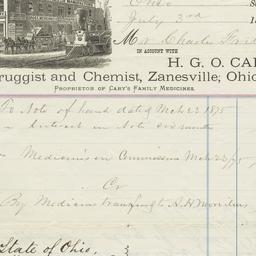 Ohio
July 3rd
Mr Charles
IN ACCOUNT WITH
H. G. O. CA
ruggist and Chemist, Zanesville, Ohi
PROPRIETOR OF CARY'S FAMILY MEDICINES.
To Note of hand dated Mch 23 1875
Interest on Note six month
Medicines on Commission Mch 23/75
Cr
By Medicines transferred to A. H.
State of Ohio,